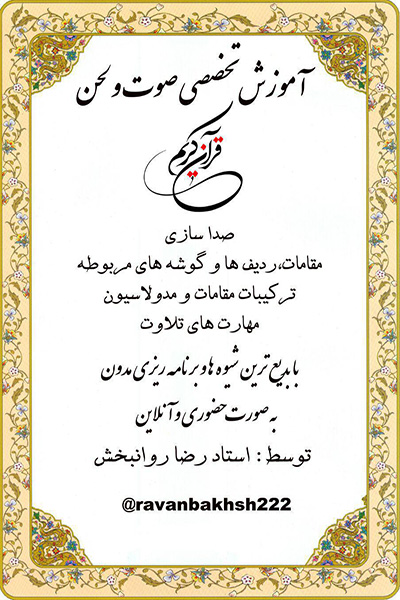 آموزش تخصصی صوت و لحن
قرآن کریم
صدا سازی
مقامات،ردیف ها و گوشه های مربوطه
ترکیبات مقامات و مدولاسیون
مهارت های تلاوت
با بدیع ترین شیوه ها و برنامه ریزی مدون
به صورت حضوری و آنلاین
توسط : استاد رضا روانبخش
@ravanbakhsh222